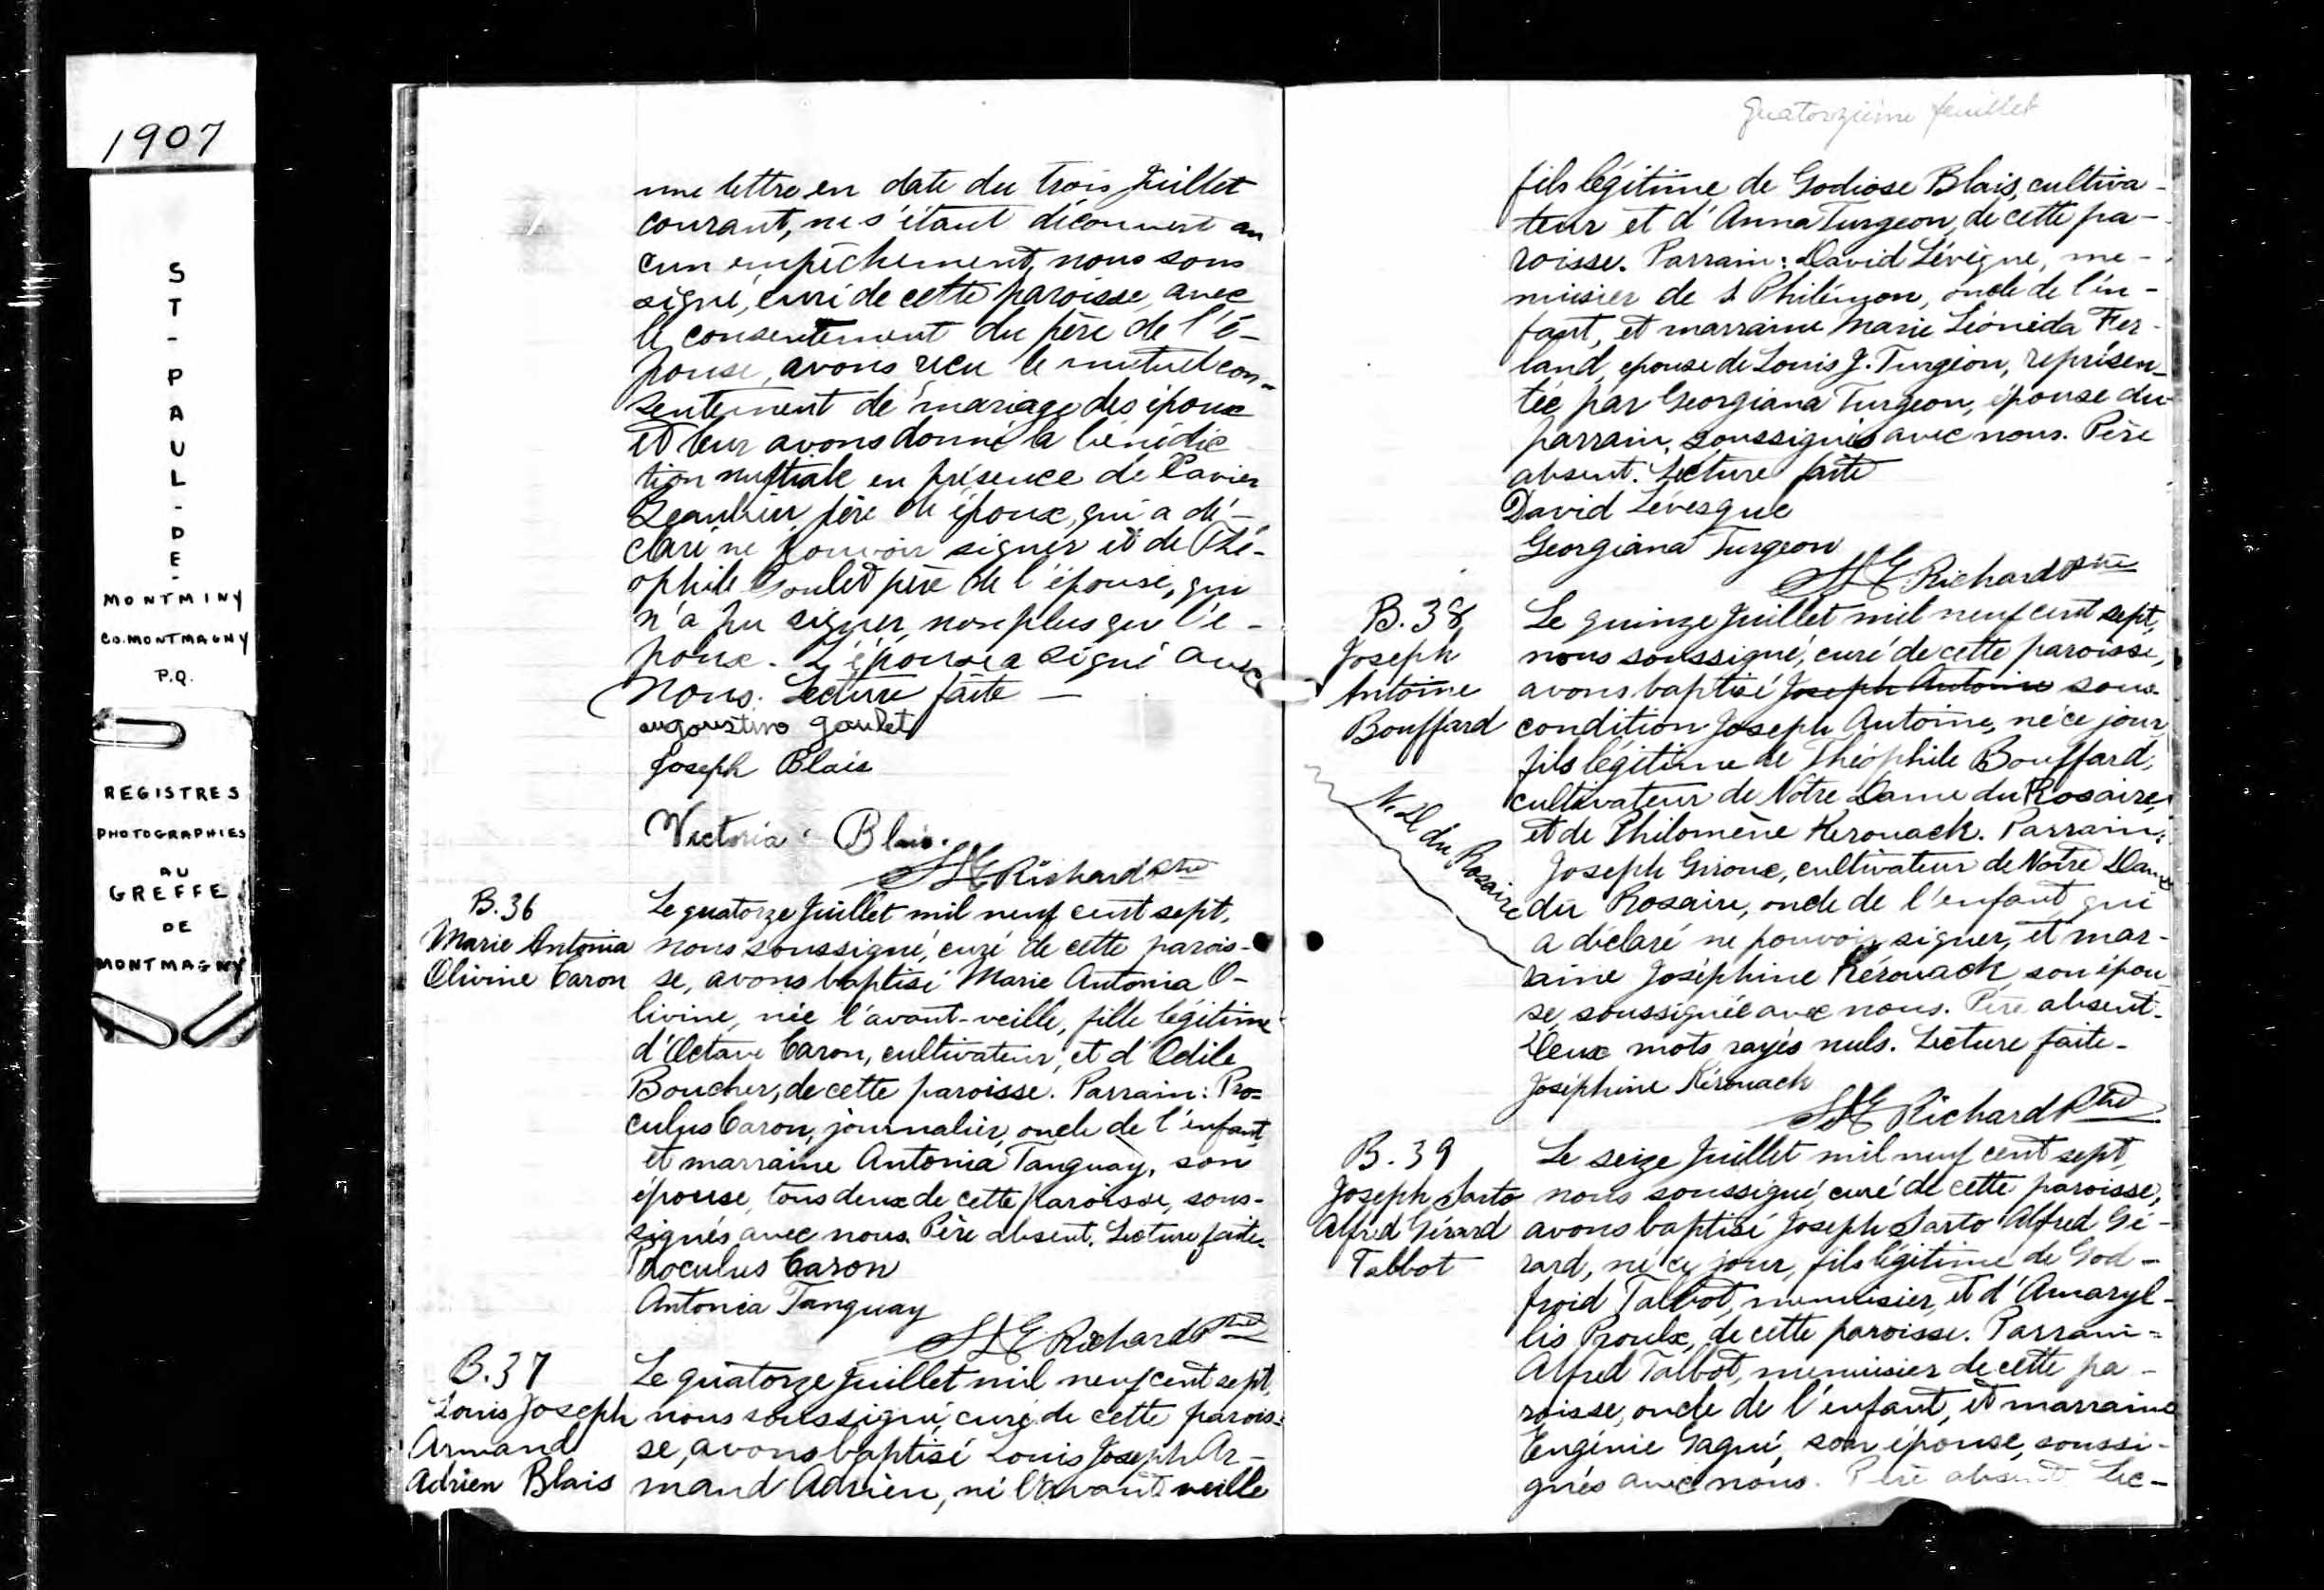 1907
ST-PAUL-DE-
MONTMINY
CO. MONTMAGNY
P.Q.
REGISTRES
PHOTOGRAPHIES
AU
GREFFE
DE
MONTMAGNY
une lettre en date du trois Juillet
courant, ne s'étant découvert au
cun empêchement, nous sous
signé, curé de cette paroisse, avec
le consentement du père de l'é-
pouse, avons reçu le mutuel con-
sentement de mariage des époux
et leur avons donné la bénédic
tion nuptiale en présence de Xavier
père de époux, qui a dé-
claré ne pouvoir signer et de Thé-
ophile Goulet père de l'épouse, qui
n'a pu signer, non plus que l'é-
poux. L'épouse a signé avec
nous. Lecture faite —
augoustino goulet
Joseph Blais
Victoria Blais.
Richard Ptre
B.36
Marie Antonia
Olivine Caron
Le quatorze Juillet mil neuf cent sept,
nous soussigné, curé de cette parois-
se, avons baptisé Marie Antonia O-
livine, née l'avant-veille, fille légitime
d'Octave Caron, cultivateur, et d'Odile
Boucher, de cette paroisse. Parrain: Pro=
culus Caron, journalier, oncle de l'enfant,
et marraine Antonia Tanguay, son
épouse, tous deux de cette paroisse, sous-
signés avec nous. Père absent. Lecture faite.
Proculus Caron
Antonia Tanguay
Richard Ptre
B.37
Louis Joseph
Armand
Adrien Blais
Le quatorze Juillet mil neuf cent sept,
nous soussigné, curé de cette parois=
se, avons baptisé Louis Joseph Ar-
mand Adrien, né l'avant veille
Quatorzième feuillet
fils légitime de Godiose Blais, cultiva-
teur et d'Anna Turgeon, de cette pa-
roisse. Parrain: David Lévêque, me-
nuisier de St Philémon, oncle de l'en-
fant, et marraine Marie Léonida Fer-
land, épouse de Louis J. Turgeon, représen-
tée par Georgiana Turgeon, épouse du
parrain, soussignés avec nous. Père
absent. Lecture faite
David Lévesque
Georgiana Turgeon
Richard Ptre
B.38
Joseph
Antoine
Bouffard
N.D. du Rosaire
Le quinze Juillet mil neuf cent sept,
nous soussigné, curé de cette paroisse,
avons baptisé Joseph Antoine sous
condition Joseph Antoine, né ce jour
fils légitime de Théophile Bouffard,
cultivateur de Notre Dame du Rosaire,
et de Philomène Kerouack. Parrain:
Joseph Giroux, cultivateur de Notre Dame
du Rosaire, oncle de l'enfant qui
a déclaré ne pouvoir signer, et mar-
raine Joséphine Kérouack son épou
se soussignée avec nous. Père absent.
Deux mots rayés nuls. Lecture faite-
Joséphine Kérouack
Richard Ptre
B.39
Joseph Sarto
Alfred Gérard
Talbot
Le seize Juillet mil neuf cent sept,
nous soussigné, curé de cette paroisse,
avons baptisé Joseph Sarto Alfred Gé-
rard, né ce jour, fils légitime de God-
froid Talbot, menuisier, et d'Amaryl-
lis Proulx, de cette paroisse. Parrain=
Alfred Talbot, menuisier de cette pa-
roisse, oncle de l'enfant, et marraine
Eugénie Gagné, son épouse, soussi-
gnés avec nous. Père absent. Lec-